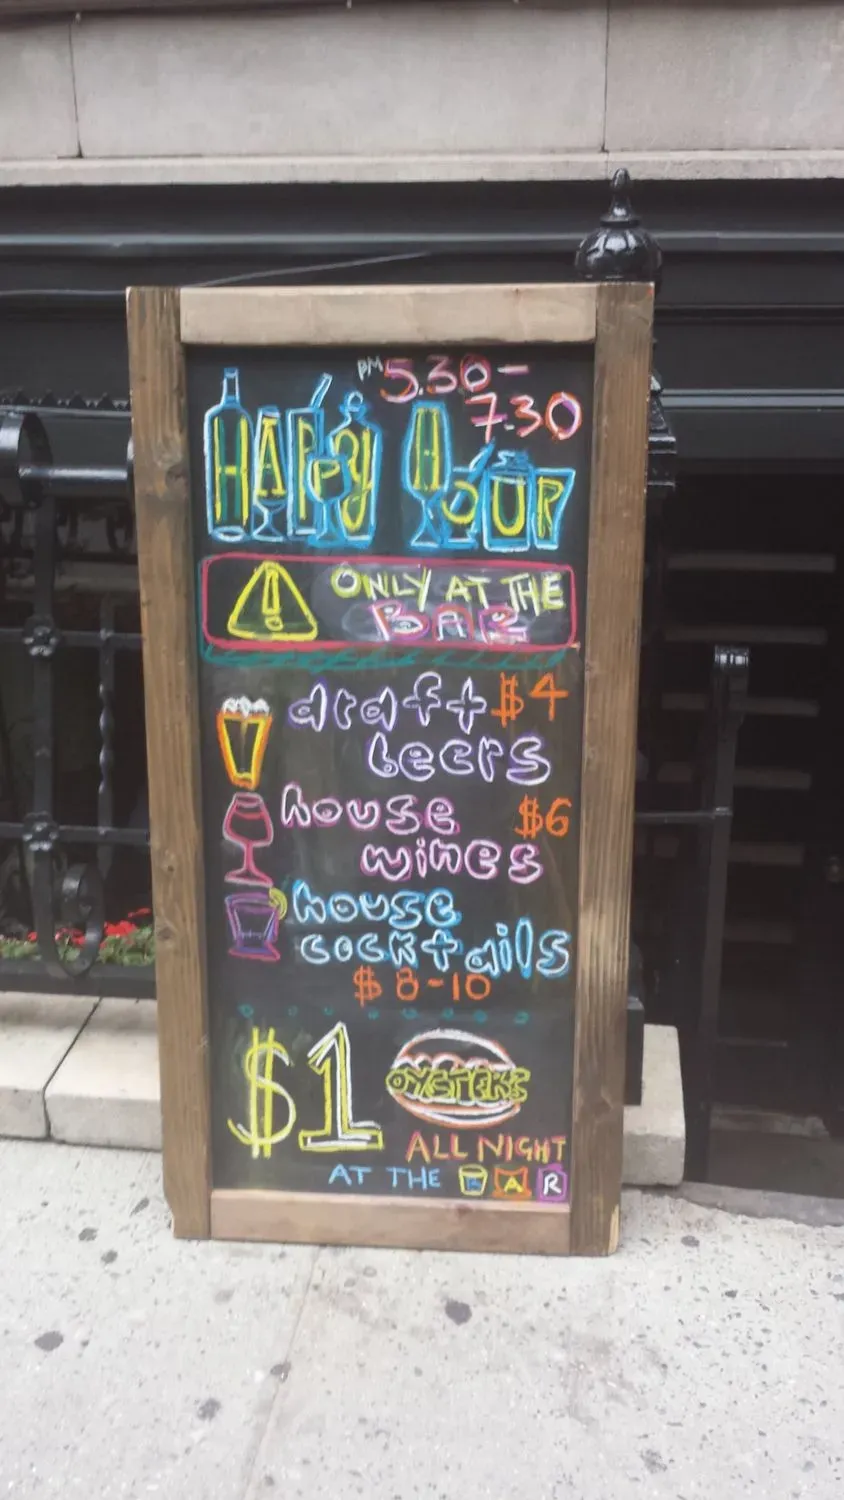 PM 5.30-
7.30
HAPPY HOUR
ONLY AT THE
BAR
draft $4
beers
house $6
wines
house
cocktails
$8-10
$1 OYSTERS
ALL NIGHT
AT THE BAR